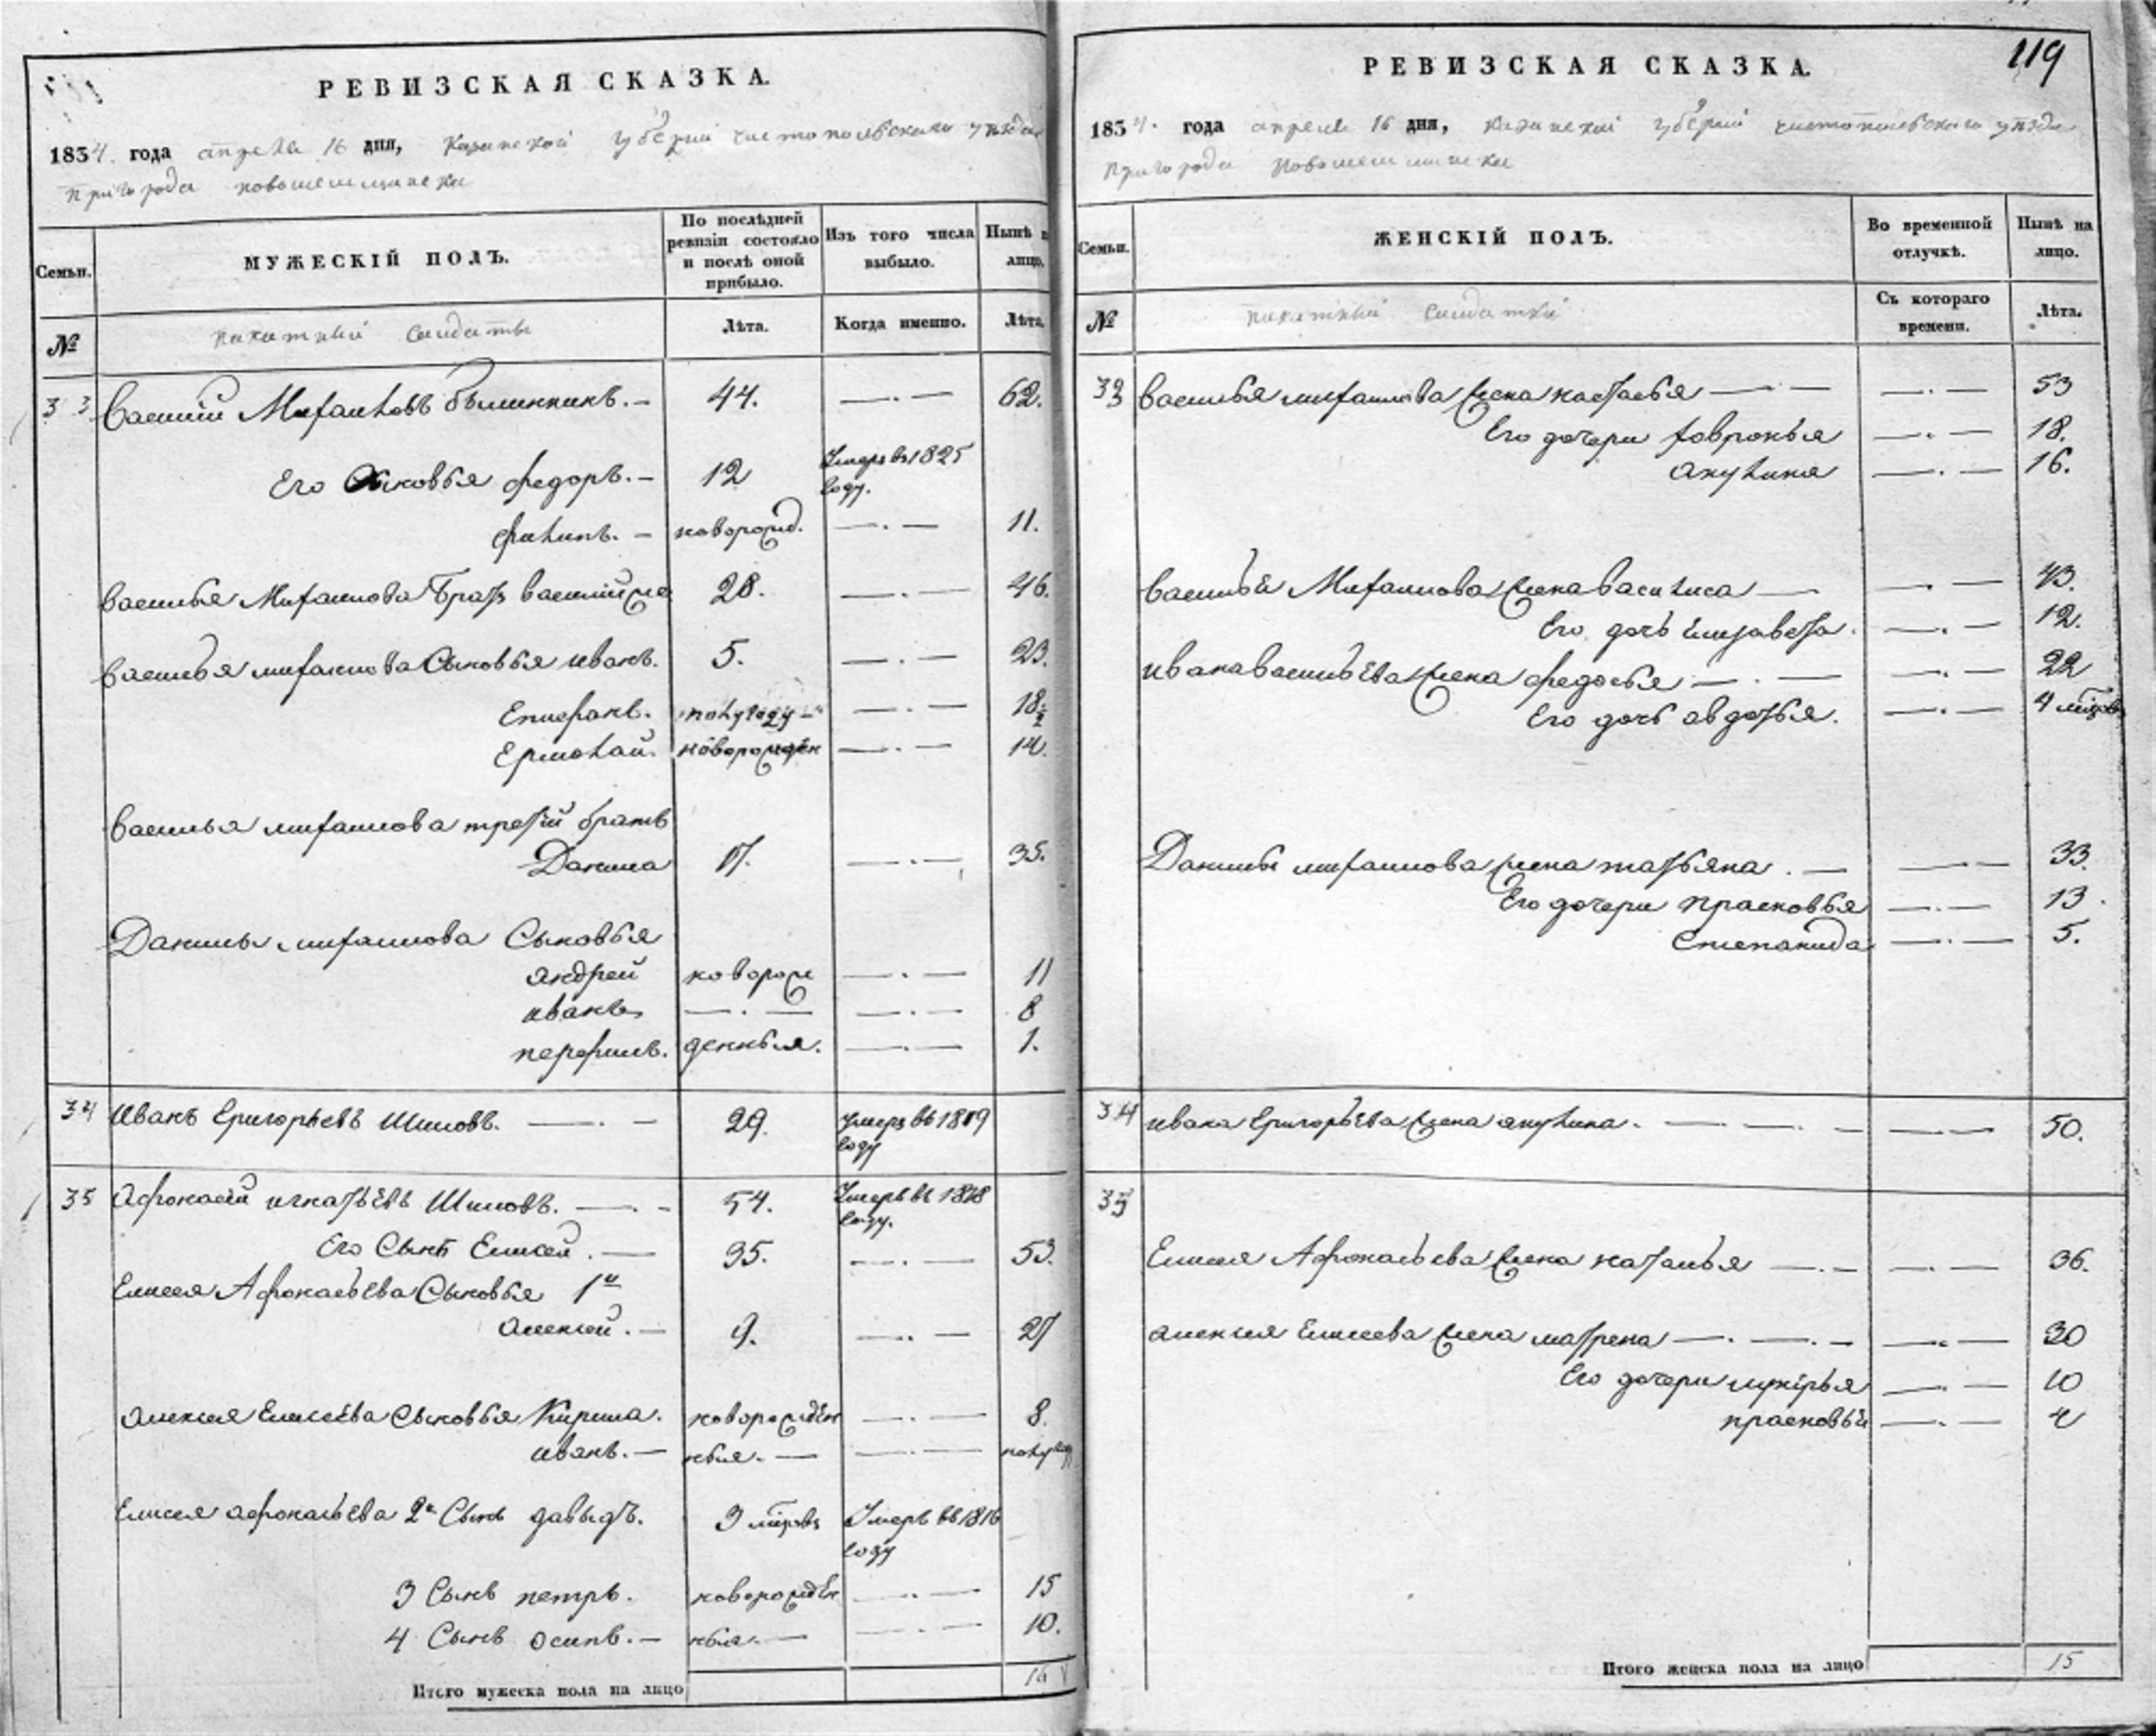 119
РЕВИЗСКАЯ СКАЗКА.
1834. года апреля 16 дня, Казанской губернии чистопольскаго уезда
пригорода новошешминска
Семьи.
МУЖЕСКІЙ ПОЛЪ.
По послѣдней ревизіи состояло и послѣ оной прибыло.
Изъ того числа выбыло.
Нынѣ на лицо.
№
пахатныи солдаты
Лѣта.
Когда именно.
Лѣта.
33 Василий Михаиловъ 44. 62.
Его Сыновья федоръ. 12 Умеръ въ 1825 году.
филипъ. новорожд. 11.
Василья Михаилова Братъ василий же 28. 46.
Василья михаилова Сыновья иванъ. 5. 23.
Епифанъ. полугоду 18½
Ермолай. новорожден 14.
Василья михаилова третий братъ
Данила 17. 35.
Данилы михаилова Сыновья
андрей новорож 11
иванъ 8
перфилъ. денныя. 1.
34 Иванъ Григорьевъ Шиловъ. 29. Умеръ въ 1819 году
35 Афонасий игнатьевъ Шиловъ. 54. Умеръ въ 1818 году.
Его Сынъ Елисей. 35. 53.
Елисея Афонасьева Сыновья 1й
алексей. 9. 27
алексея Елисеева Сыновья Кирила. новорожден 8.
иванъ. ныя. полугод
Елисея афонасьева 2й Сынъ давыдъ. 3 месецовъ Умеръ въ 1816 году
3 Сынъ петръ. новорожден 15
4 Сынъ осипъ. ныя. 10.
Итого мужеска пола на лицо 16
РЕВИЗСКАЯ СКАЗКА.
1834. года апреля 16 дня, казанской губернии чистопольскаго уезда
пригорода новошешминска
Семьи.
ЖЕНСКІЙ ПОЛЪ.
Во временной отлучкѣ.
Нынѣ на лицо.
№
пахатныи солдатки
Съ котораго времени.
Лѣта.
33 Василья михаилова жена настасья 53
Его дочери февронья 18.
акулина 16.
Василья Михаилова жена василиса 43.
Его дочь Елизавета. 12.
ивана васильева жена федосья 22
Его дочь авдотья. 4 месецовъ
Данилы михаилова жена татьяна. 33.
Его дочери прасковья 13.
степанида 5.
34 ивана Григорьева жена акулина. 50.
35
Елисея Афонасьева жена наталья 36.
алексея Елисеева жена матрена 30
Его дочери лукерья 10
прасковья 4
Итого женска пола на лицо 15